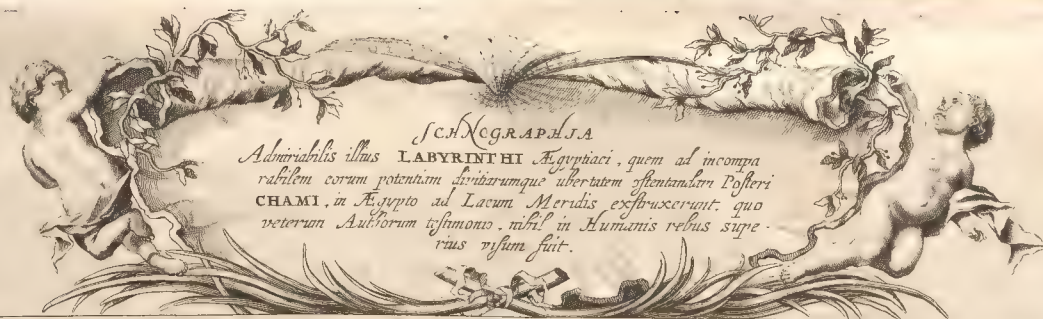 ICHNOGRAPHIA
Admiriabilis illius LABYRINTHI Ægyptiaci, quem ad incompa
rabilem eorum potentiam divitiarumque ubertatem ostentandam Posteri
CHAMI, in Ægypto ad Lacum Meridis exstruxerunt, quo
veterum Authorum testimonio, nihil in Humanis rebus supe-
rius visum fuit.